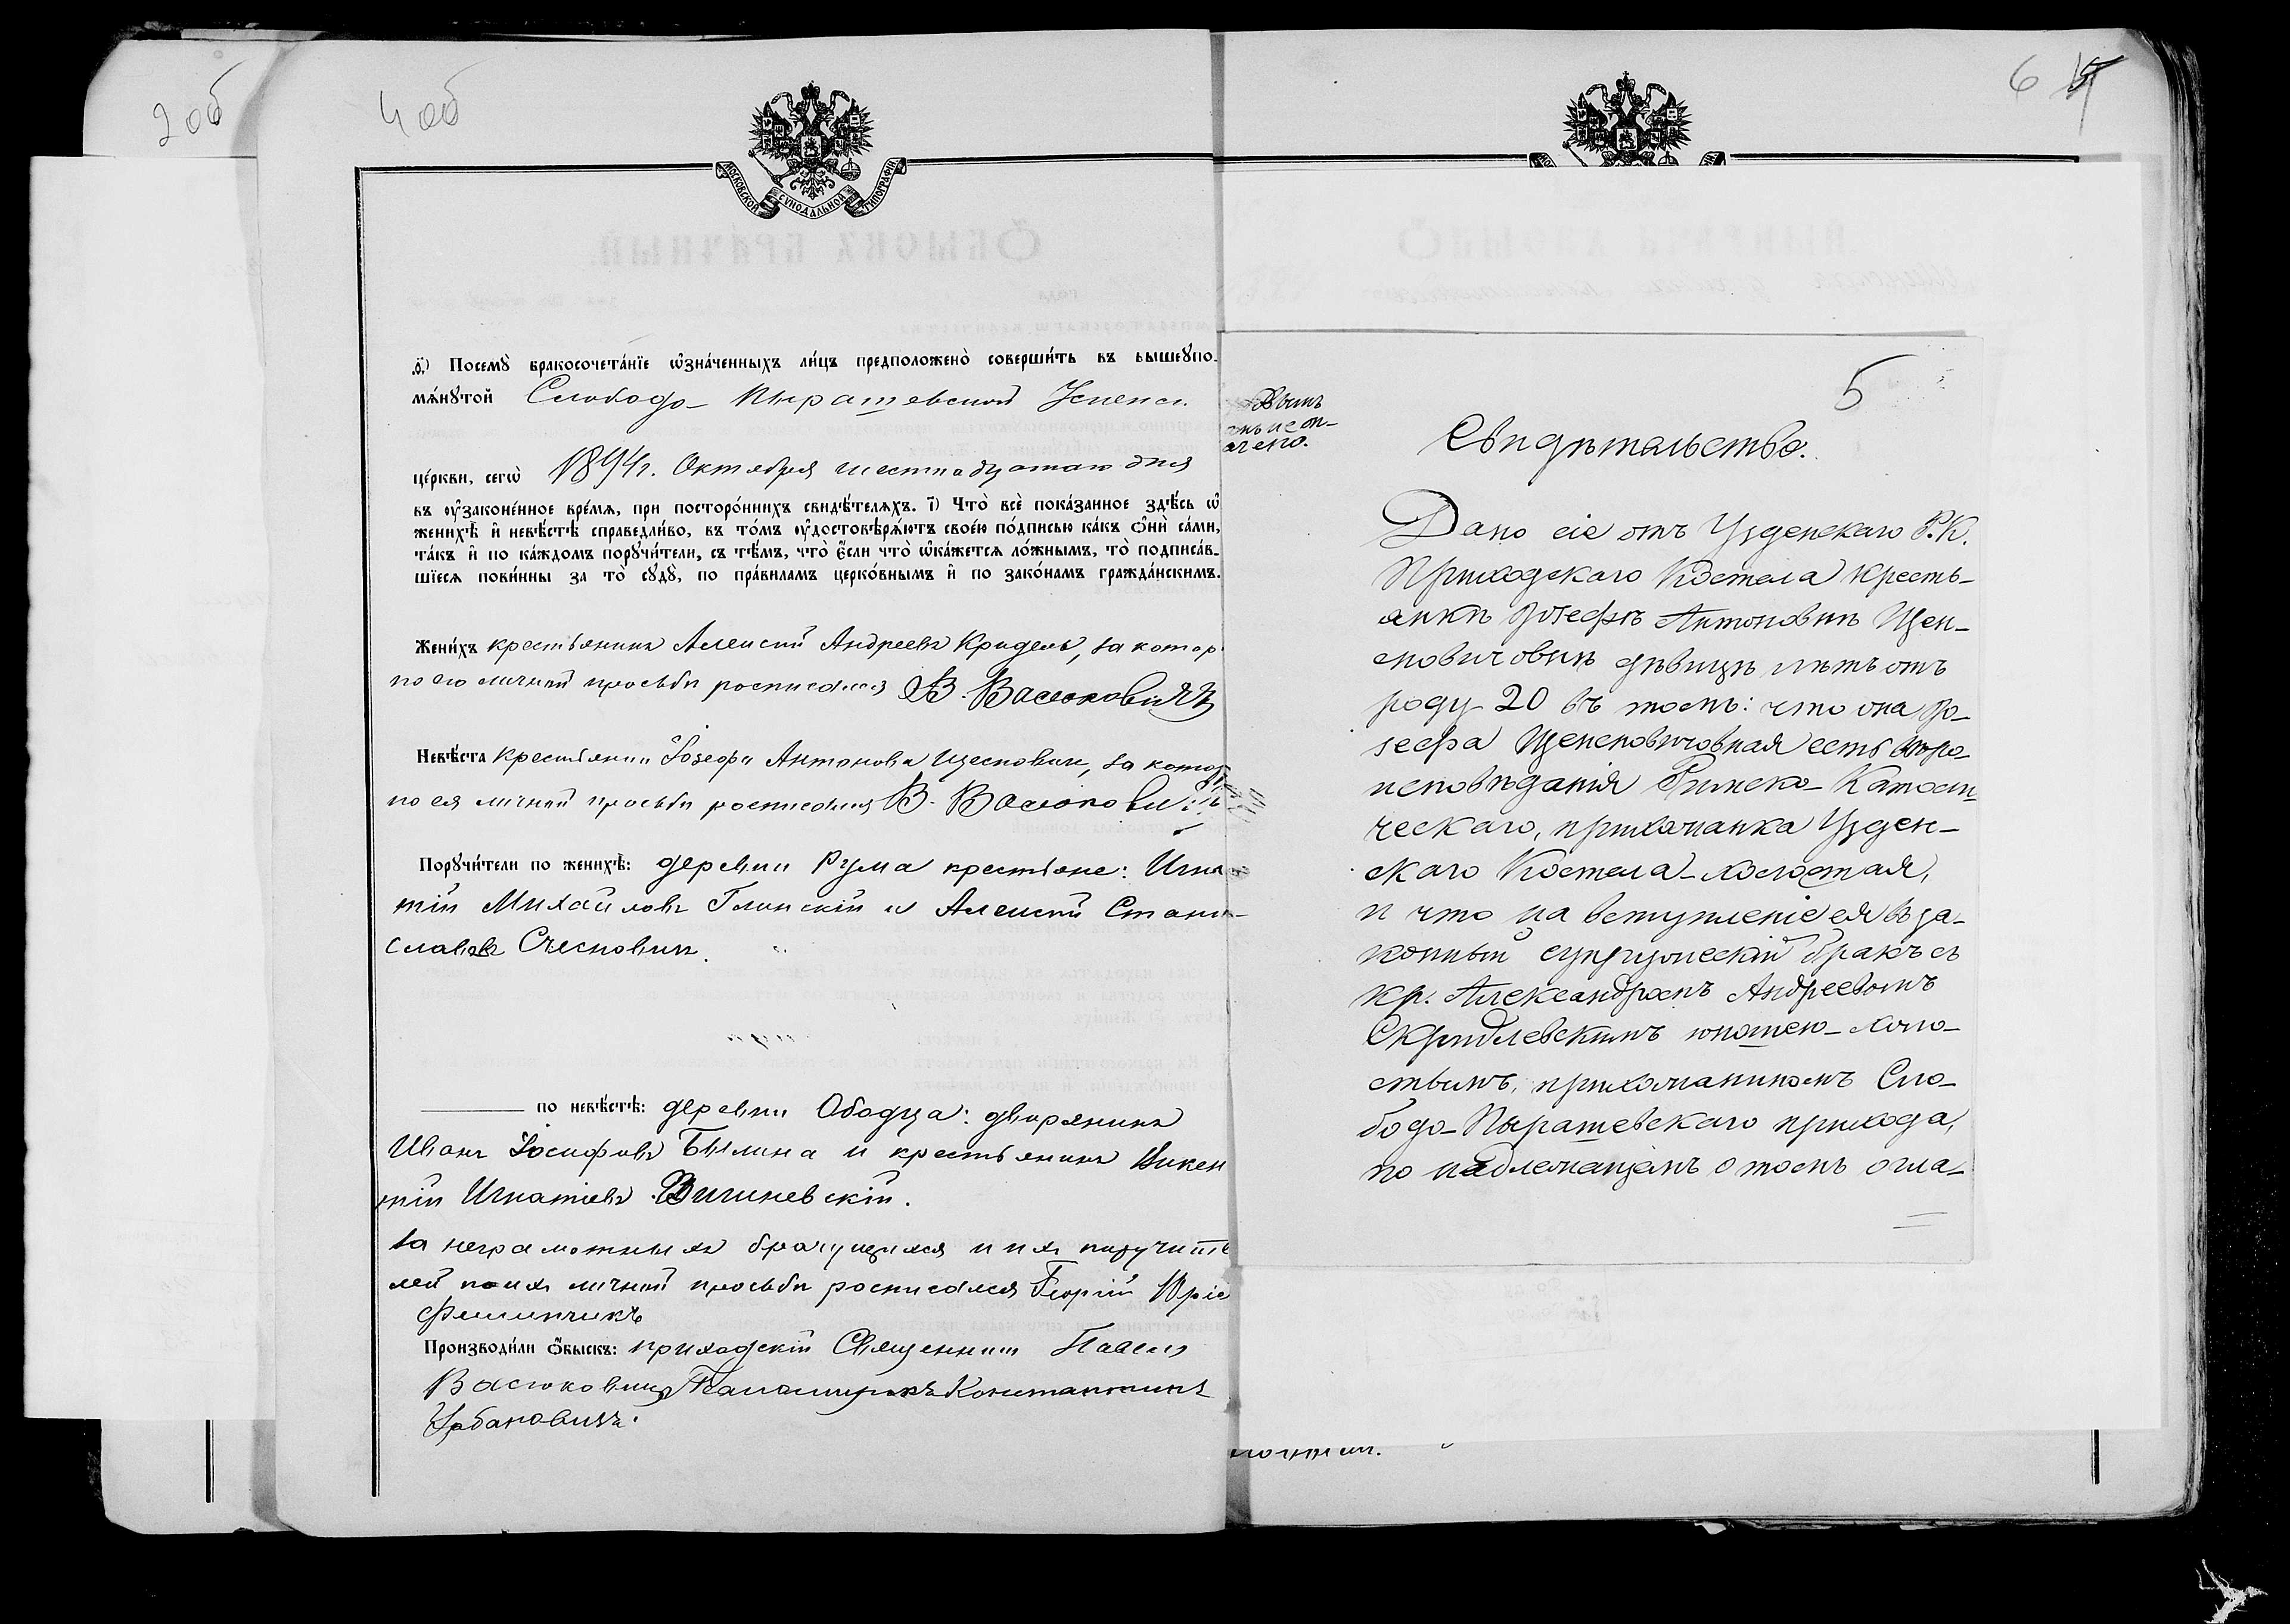 2 об
4 об
МОСКОВСКОЙ СѴНОДАЛЬНОЙ ТИПОГРАФІИ
ѳ҃) Посемꙋ̀ бракосочета́нїе ѡ҆зна́ченныхъ ли́цъ предположено̀ соверши́ть въ вышеꙋпо-
мѧ́нꙋтой Слободо-Пырашевской Успенс.
це́ркви, сегѡ̀ 1894 г. Октября шестнадцатаго дня
въ ᲂу҆законе́нное вре́мѧ, при посторо́ннихъ свидѣ́телѧхъ. і҃) Что̀ всѐ пока́занное здѣ́сь ѡ҆
женихѣ̀ и҆ невѣ́стѣ справедли́во, въ то́мъ ᲂу҆достовѣрѧ́ютъ свое́ю по́дписью ка́къ ѻ҆нѝ са́ми,
та́къ и҆ по ка́ждомъ порꙋчи́тели, съ тѣ́мъ, что̀ є҆́сли что̀ ѡ҆ка́жетсѧ ло́жнымъ, то̀ подписа́в-
шїесѧ пови́нны за то̀ сꙋдꙋ̀, по пра́виламъ церко́внымъ и҆ по зако́намъ гражда́нскимъ.
Жени́хъ крестьянинъ Алексій Андреевъ Кридель, за котор
по его личной просьбѣ росписался В. Васюковичъ
Невѣ́ста крестьянка Іозефа Антонова Щесновичъ, за котор
по ея личной просьбѣ росписался В. Васюкович
Порꙋчи́тели по женихѣ̀: деревни Рума крестьяне: Игна
тій Михайловъ Глинскій и Алексій Стани-
славовъ Счесновичъ.
по невѣ́стѣ: деревни Ободца: дворянинъ
Иванъ Іосифовъ Былина и крестьянинъ Викен
тій Игнатіевъ
За неграмотныхъ брачущихся и ихъ поручите
лей по ихъ личной просьбѣ росписался Георгій Юріе
Филипчикъ
Производи́ли ѻ҆́быскъ: приходскій Священникъ Павелъ
Васюковичъ Псаломщикъ Константинъ
Урбановичъ.
6
5
Свидѣтельство.
Дано сіе отъ Узденскаго Р.К.
Приходскаго Костела кресть-
янкѣ Іозефѣ Антоновнѣ Щен-
сновичовнѣ дѣвицѣ лѣтъ отъ
роду 20 въ томъ: что она Іо-
зефа Щенсновичовная есть вѣро-
исповѣданія Римско-Католи-
ческаго, прихожанка Узден-
скаго Костела - холостая,
и что на вступленіе ея въ за-
конный супружескій бракъ съ
кр. Александромъ Андреевомъ
Скридлевскимъ юношею - холо-
стымъ, прихожаниномъ Сло-
бодо-Пырашевскаго прихода,
по надлежащемъ о томъ огла-